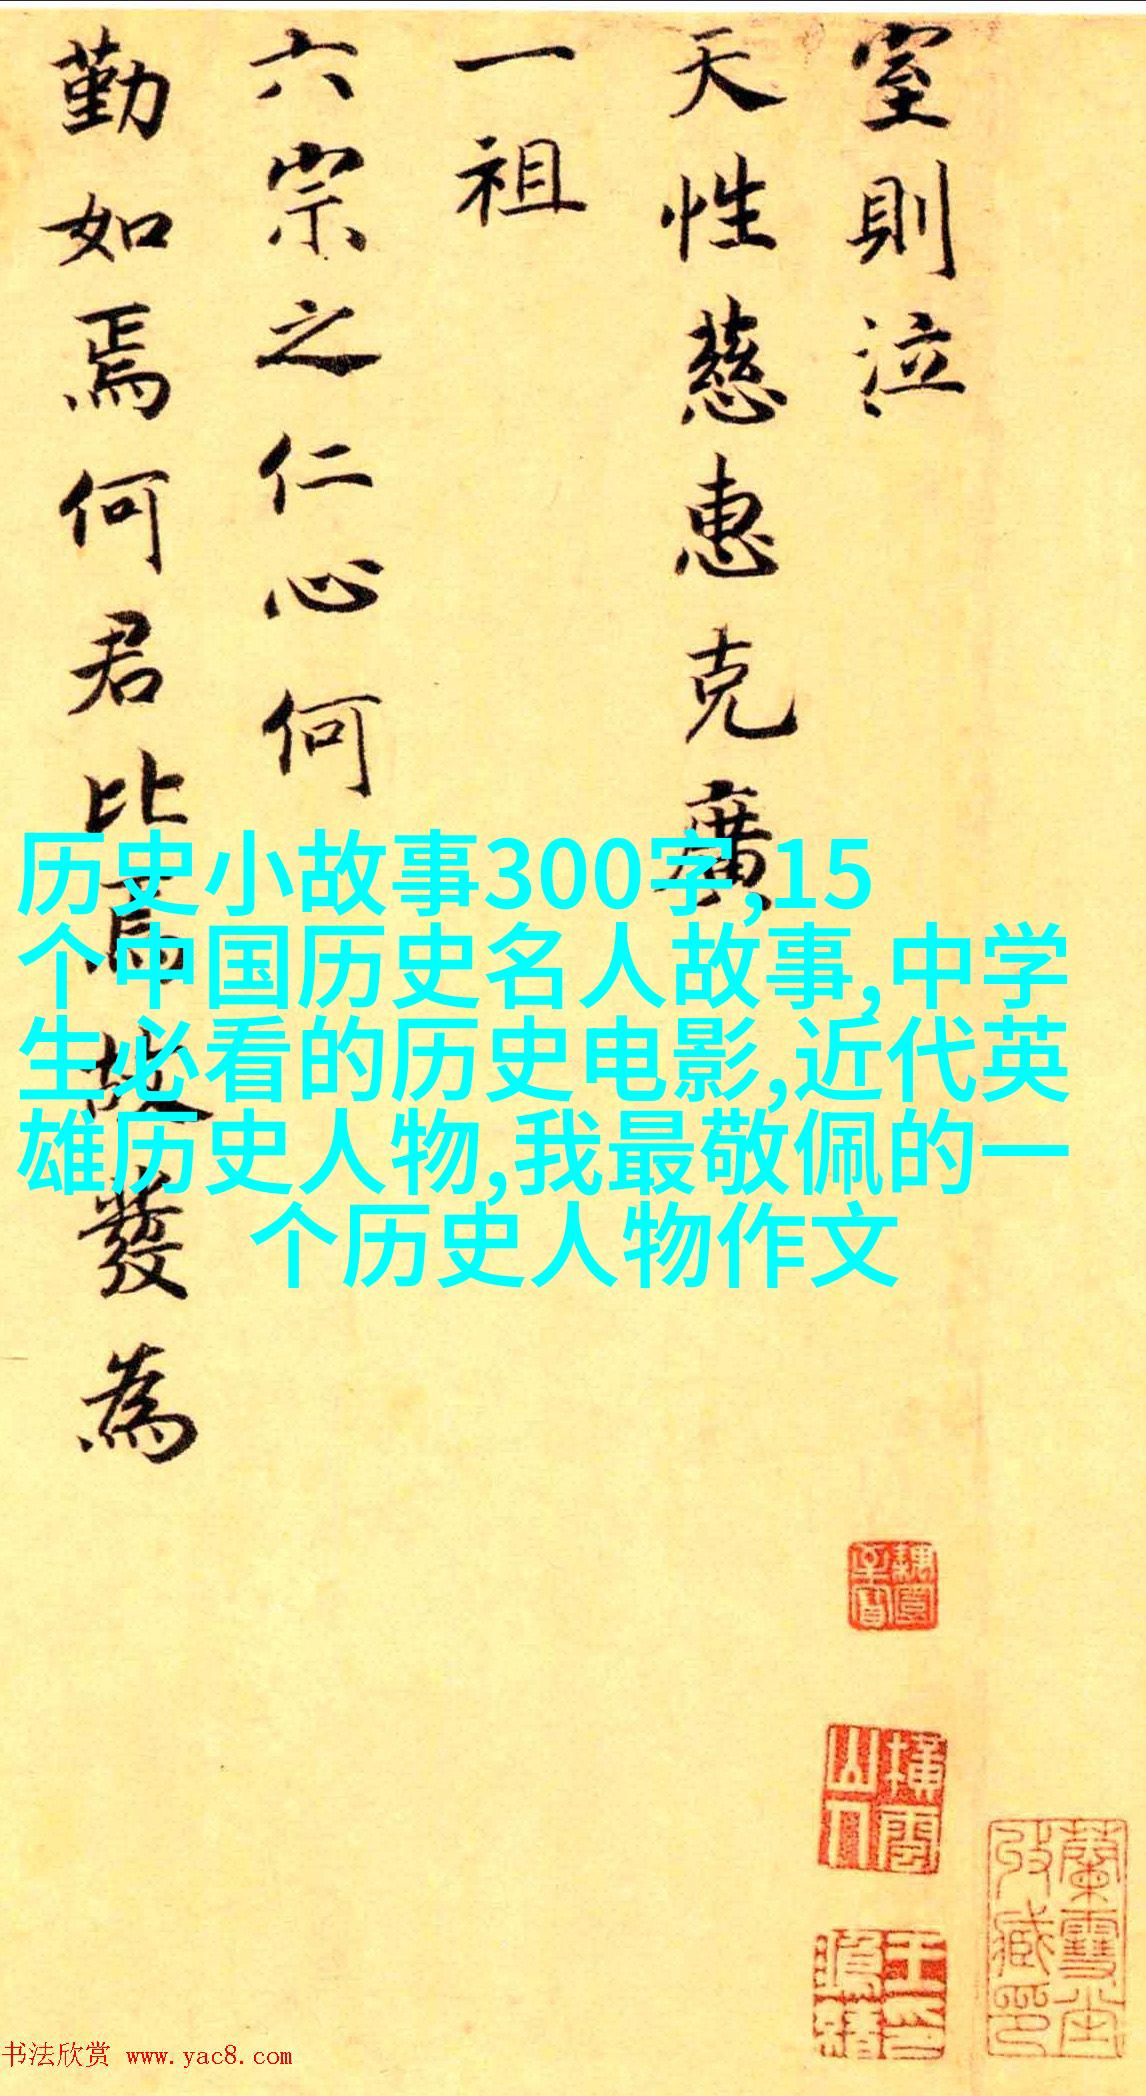 室則泣
天性慈惠克廣
一祖
六宗之仁心何
勤如焉何君比焉故發為
历史小故事300字,15
个中国历史名人故事,中学
生必看的历史电影,近代英
雄历史人物,我最敬佩的一
个历史人物作文
橫雲山人
蘭雪堂收藏印
王鴻緒印
书法欣赏 www.yac8.com